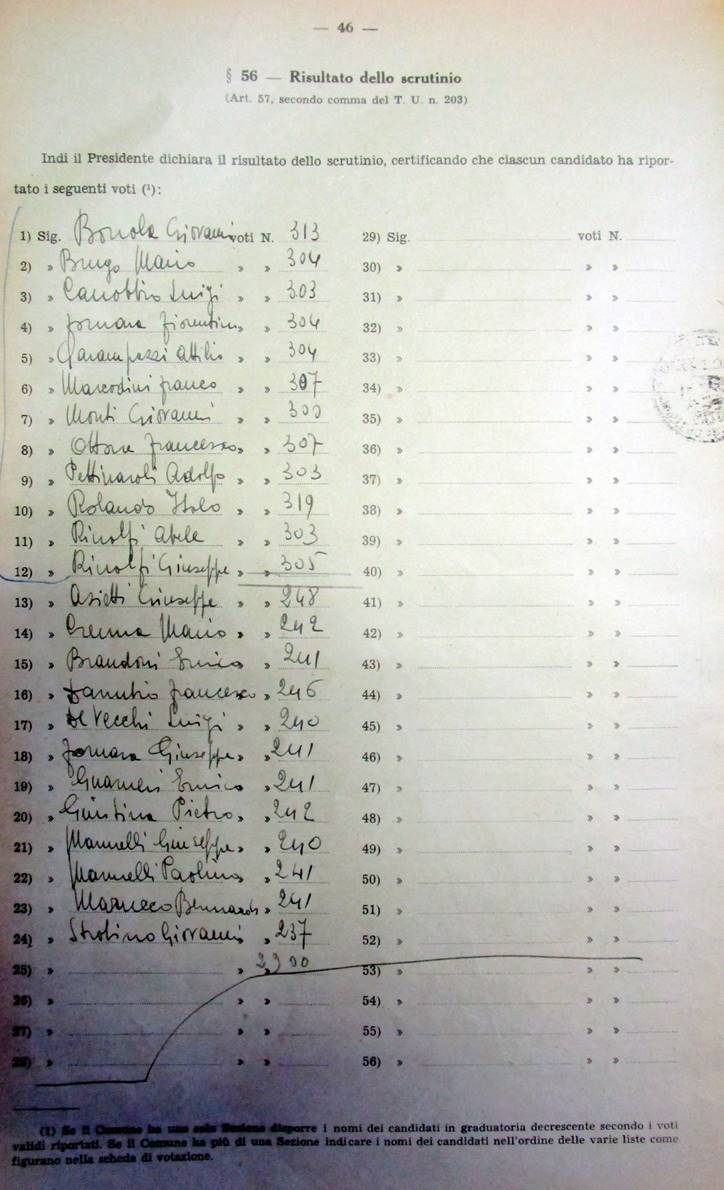 — 46 —
§ 56 — Risultato dello scrutinio
(Art. 57, secondo comma del T. U. n. 203)
Indi il Presidente dichiara il risultato dello scrutinio, certificando che ciascun candidato ha ripor-
tato i seguenti voti (¹):
1) Sig. Bonola Giovanni voti N. 313
2) » Brugo Mario » » 304
3) » Canobbio Luigi » » 303
4) » Fornara Fiorentino » » 304
5) » Garampazzi Attilio » » 304
6) » Marcodini Franco » » 307
7) » Monti Giovanni » » 300
8) » Ottone Francesco » » 307
9) » Pettinaroli Adolfo » » 303
10) » Rolando Italo » » 319
11) » Rinolfi Abele » » 303
12) » Rinolfi Giuseppe » » 305
13) » Asietti Giuseppe » » 248
14) » Crenna Mario » » 242
15) » Brandoni Enrico » 241
16) » Francesco » 246
17) » De Vecchi Luigi » » 240
18) » Fornara Giuseppe » » 241
19) » Guarneri Enrico » » 241
20) » Giustina Pietro » » 242
21) » Giuseppe » » 240
22) » Paolino » 241
23) » Marucco » 241
24) » Strolino Giovanni » 237
25) » » 2900
26) » » »
27) » » »
28) » » »
29) Sig. voti N.
30) » » »
31) » » »
32) » » »
33) » » »
34) » » »
35) » » »
36) » » »
37) » » »
38) » » »
39) » » »
40) » » »
41) » » »
42) » » »
43) » » »
44) » » »
45) » » »
46) » » »
47) » » »
48) » » »
49) » » »
50) » » »
51) » » »
52) » » »
53) » » »
54) » » »
55) » » »
56) » » »
(1) Se il Comune ha una sola Sezione disporre i nomi dei candidati in graduatoria decrescente secondo i voti
validi riportati. Se il Comune ha più di una Sezione indicare i nomi dei candidati nell'ordine delle varie liste come
figurano nella scheda di votazione.